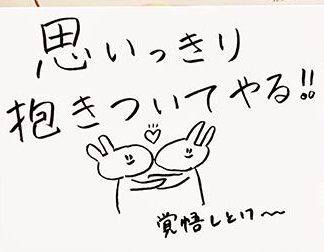 思いっきり
抱きついてやる!!
覚悟しとけ〜